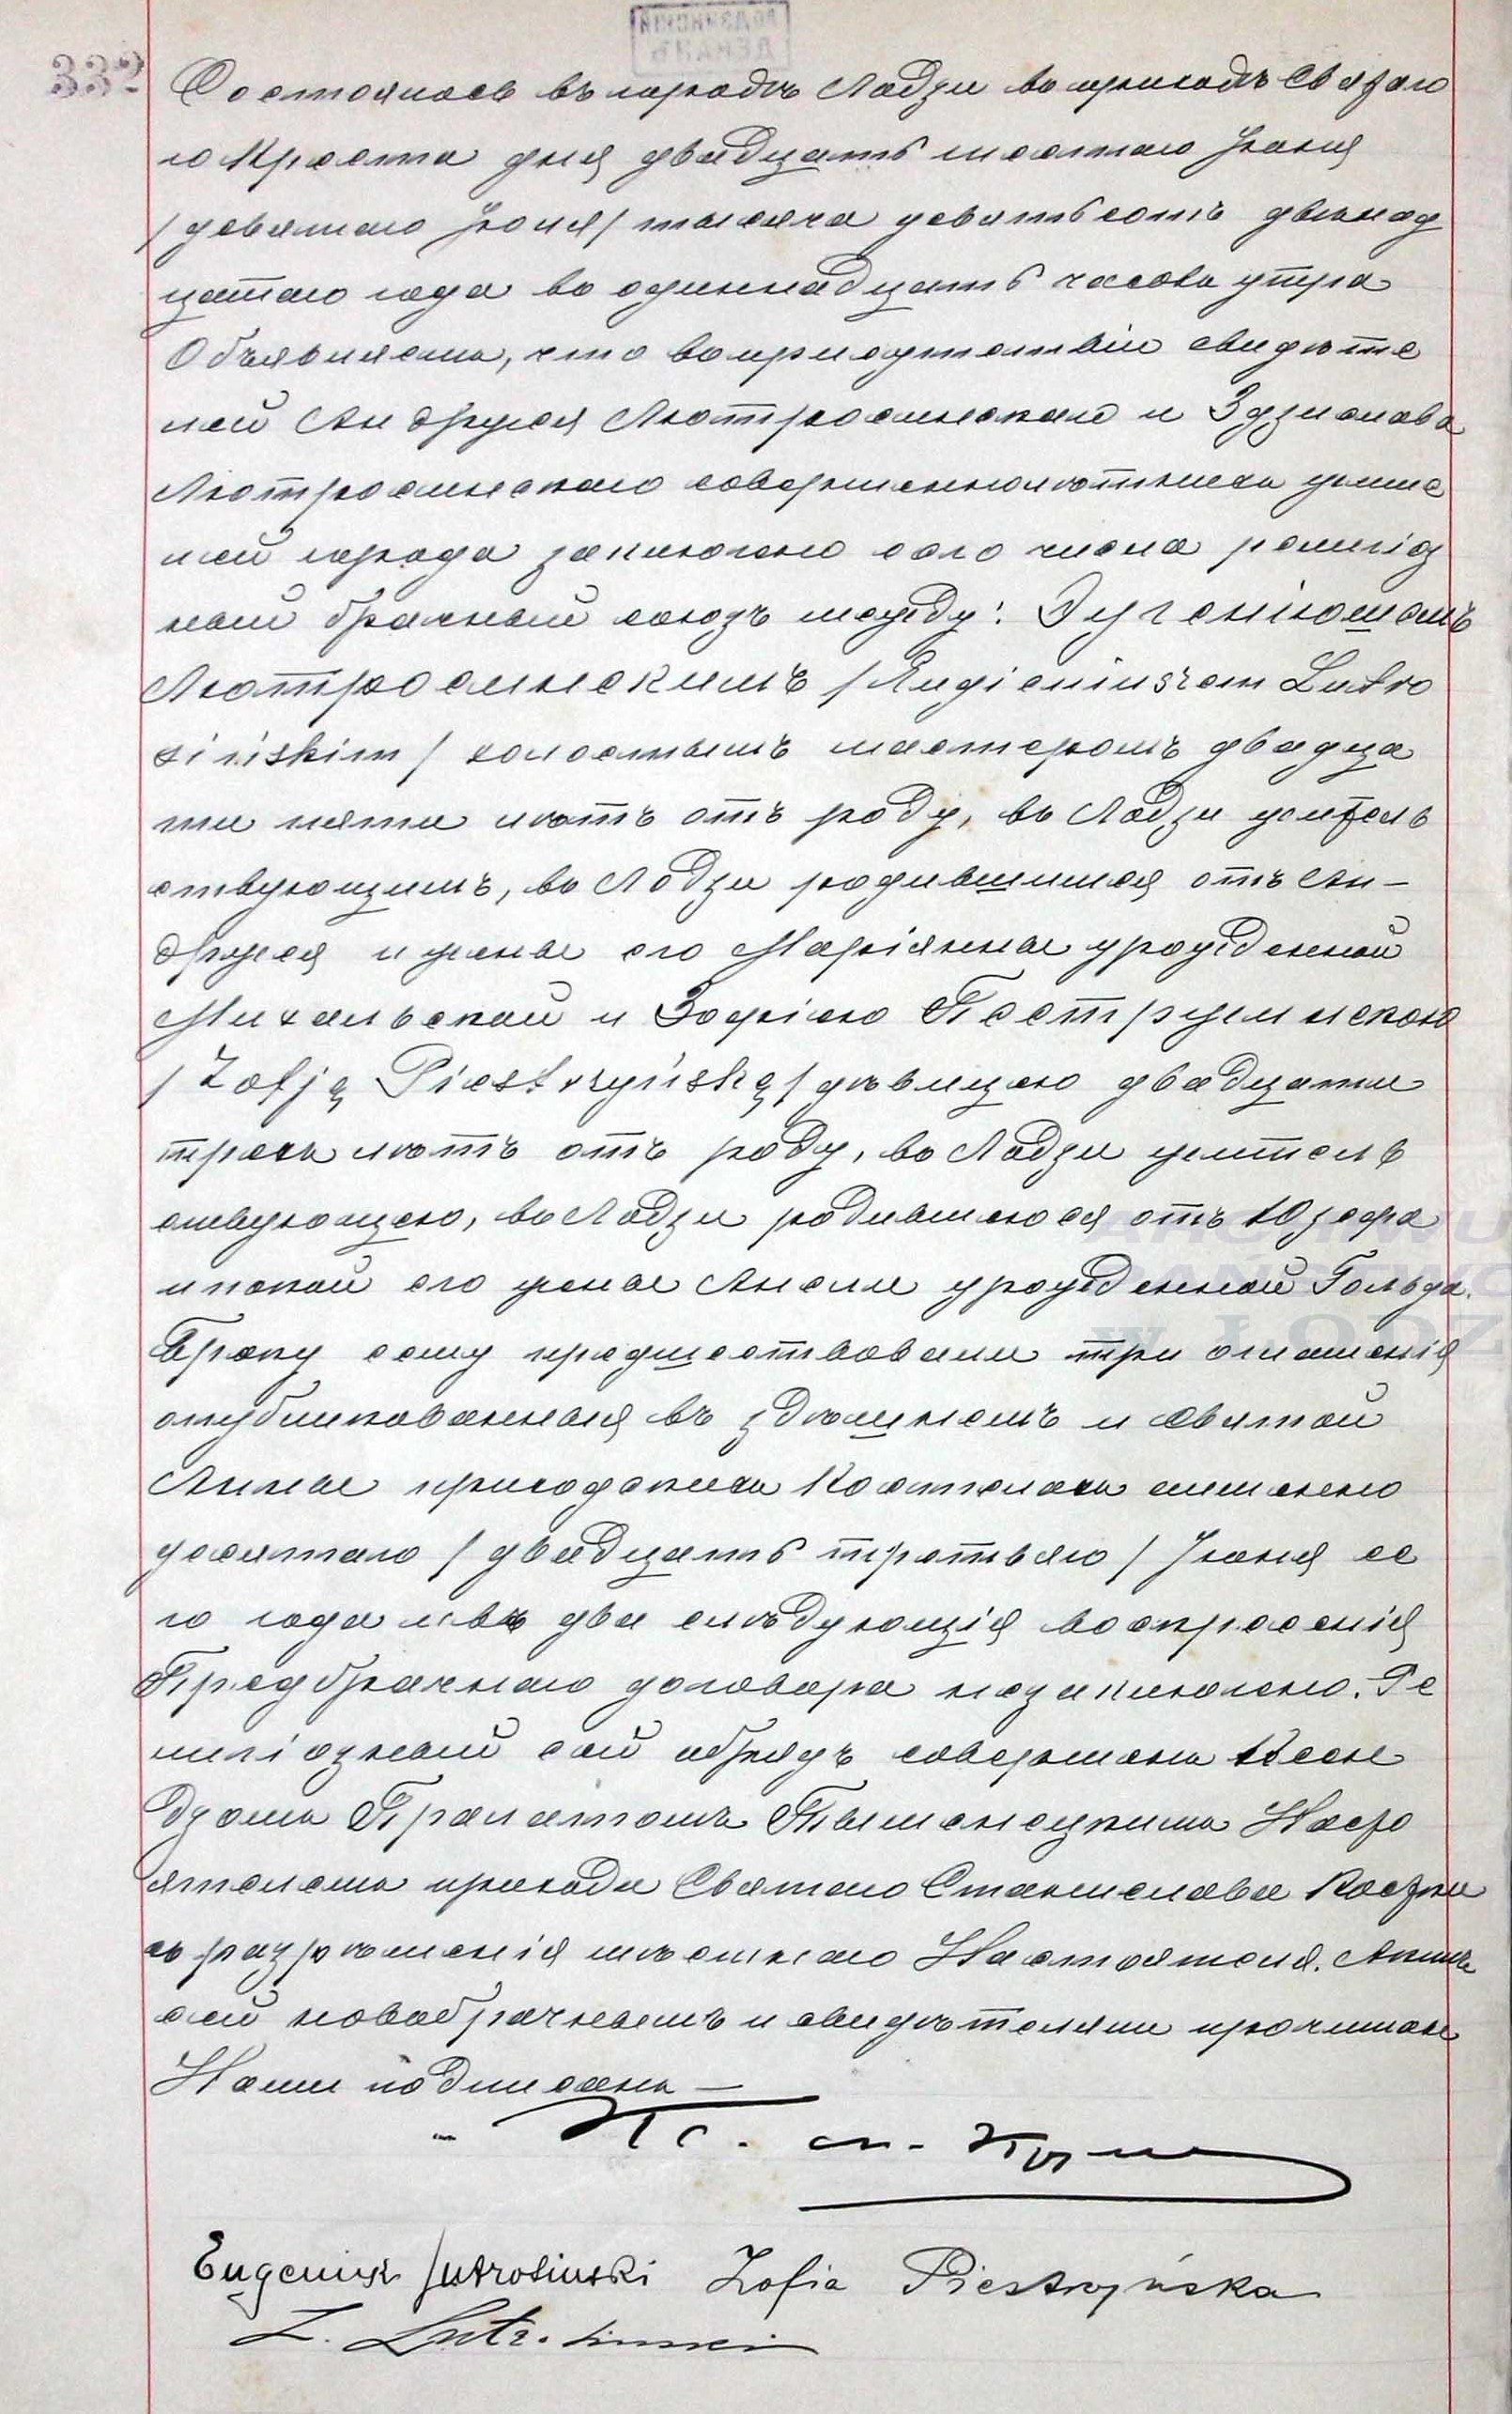 332
Состоялось въ городѣ Лодзи во приходѣ Святаго
го Креста дня двадцать шестаго Іюня
/девятаго Іюля/ тысяча девятьсотъ двѣнад
цатаго года во одиннадцать часовъ утра
Объявляемъ, что въ присутствіи свидѣте
лей Андржея Лютросинскаго и Здзислава
Лютросинскаго совершеннолѣтнихъ жите
лей города заключенъ сего числа религіоз
ный брачный союзъ между: Эугеніюшемъ
Лютросинскимъ /Eugieniuszem Lutro
sińskim/ холостымъ мастеромъ двадца
ти пяти лѣтъ отъ роду, въ Лодзи житель
ствующимъ, въ Лодзи родившимся отъ Ан-
држея и жены его Маріянны урожденной
Михальской и Зофіею Пестржинскою
/Zofją Piestrzyńską/ дѣвицею двадцати
трехъ лѣтъ отъ роду, въ Лодзи житель
ствующею, въ Лодзи родившеюся отъ Юзефа
и покой его жены Анели урожденной Гольда.
Браку сему предшествовали три оглашенія
опубликованныя въ здѣшнемъ и Святой
Анны приходскихъ Костелахъ именно
десятаго /двадцать третьяго/ Іюня се
го года и въ два слѣдующія воскресенія
Предбрачнаго договора не заключено. Ре
лигіозный сей обрядъ совершенъ Ксен
дзомъ Прелатомъ Тыменецкимъ Насто
ятелемъ прихода Святаго Станислава Костки
съ разрѣшенія мѣстнаго Настоятеля. Актъ
сей новобрачнымъ и свидѣтелямъ прочитанъ
Нами подписанъ —
Кс.
Eugeniusz Lutrosiński Zofia Piestrzyńska
Z. Lutrosiński